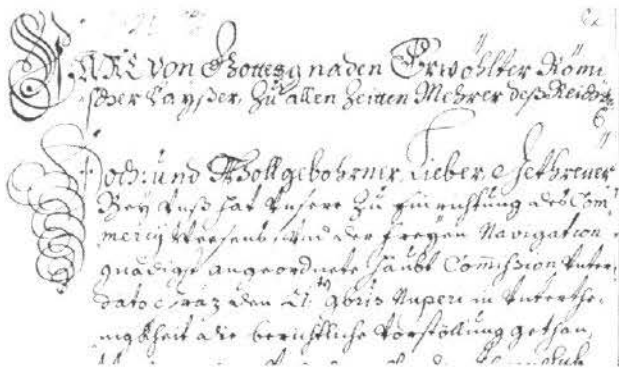 CARL von Gottes gnaden Erwöhlter Römi
scher Cayßer, Zu allen Zeitten Mehrer deß Reichs
Hoch: und Wollgebohrner, Lieber, Gethreuer
Bey Unß hat Unsere Zu Einrichtung des Com
mercij Weesens, und der freyen Navigation
gnädigst angeordnete Haubt Commission Unter
dato Gräz den 21. 9bris Nuperi in Unterthe,
nigkheit die berichtliche Vorstöllung gethan,